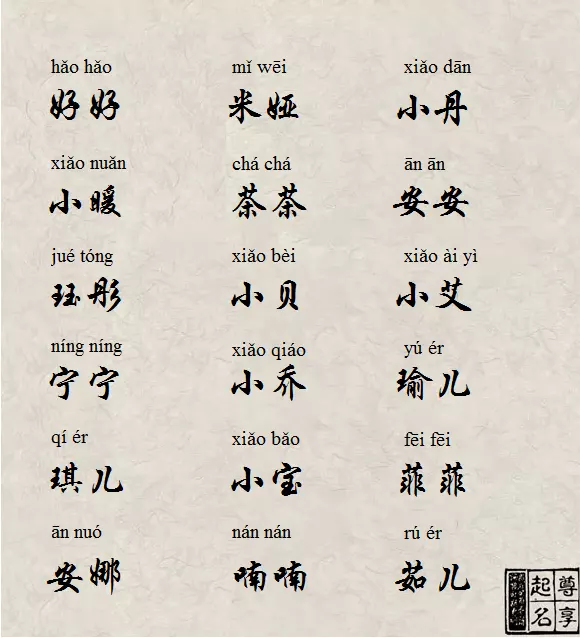 hǎo hǎo mǐ wēi xiǎo dān
好好 米娅 小丹
xiǎo nuǎn chá chá ān ān
小暖 茶茶 安安
jué tóng xiǎo bèi xiǎo ài yì
珏彤 小贝 小艾
níng níng xiǎo qiáo yú ér
宁宁 小乔 瑜儿
qí ér xiǎo bǎo fēi fēi
琪儿 小宝 菲菲
ān nuó nán nán rú ér
安娜 喃喃 茹儿
尊享
起名